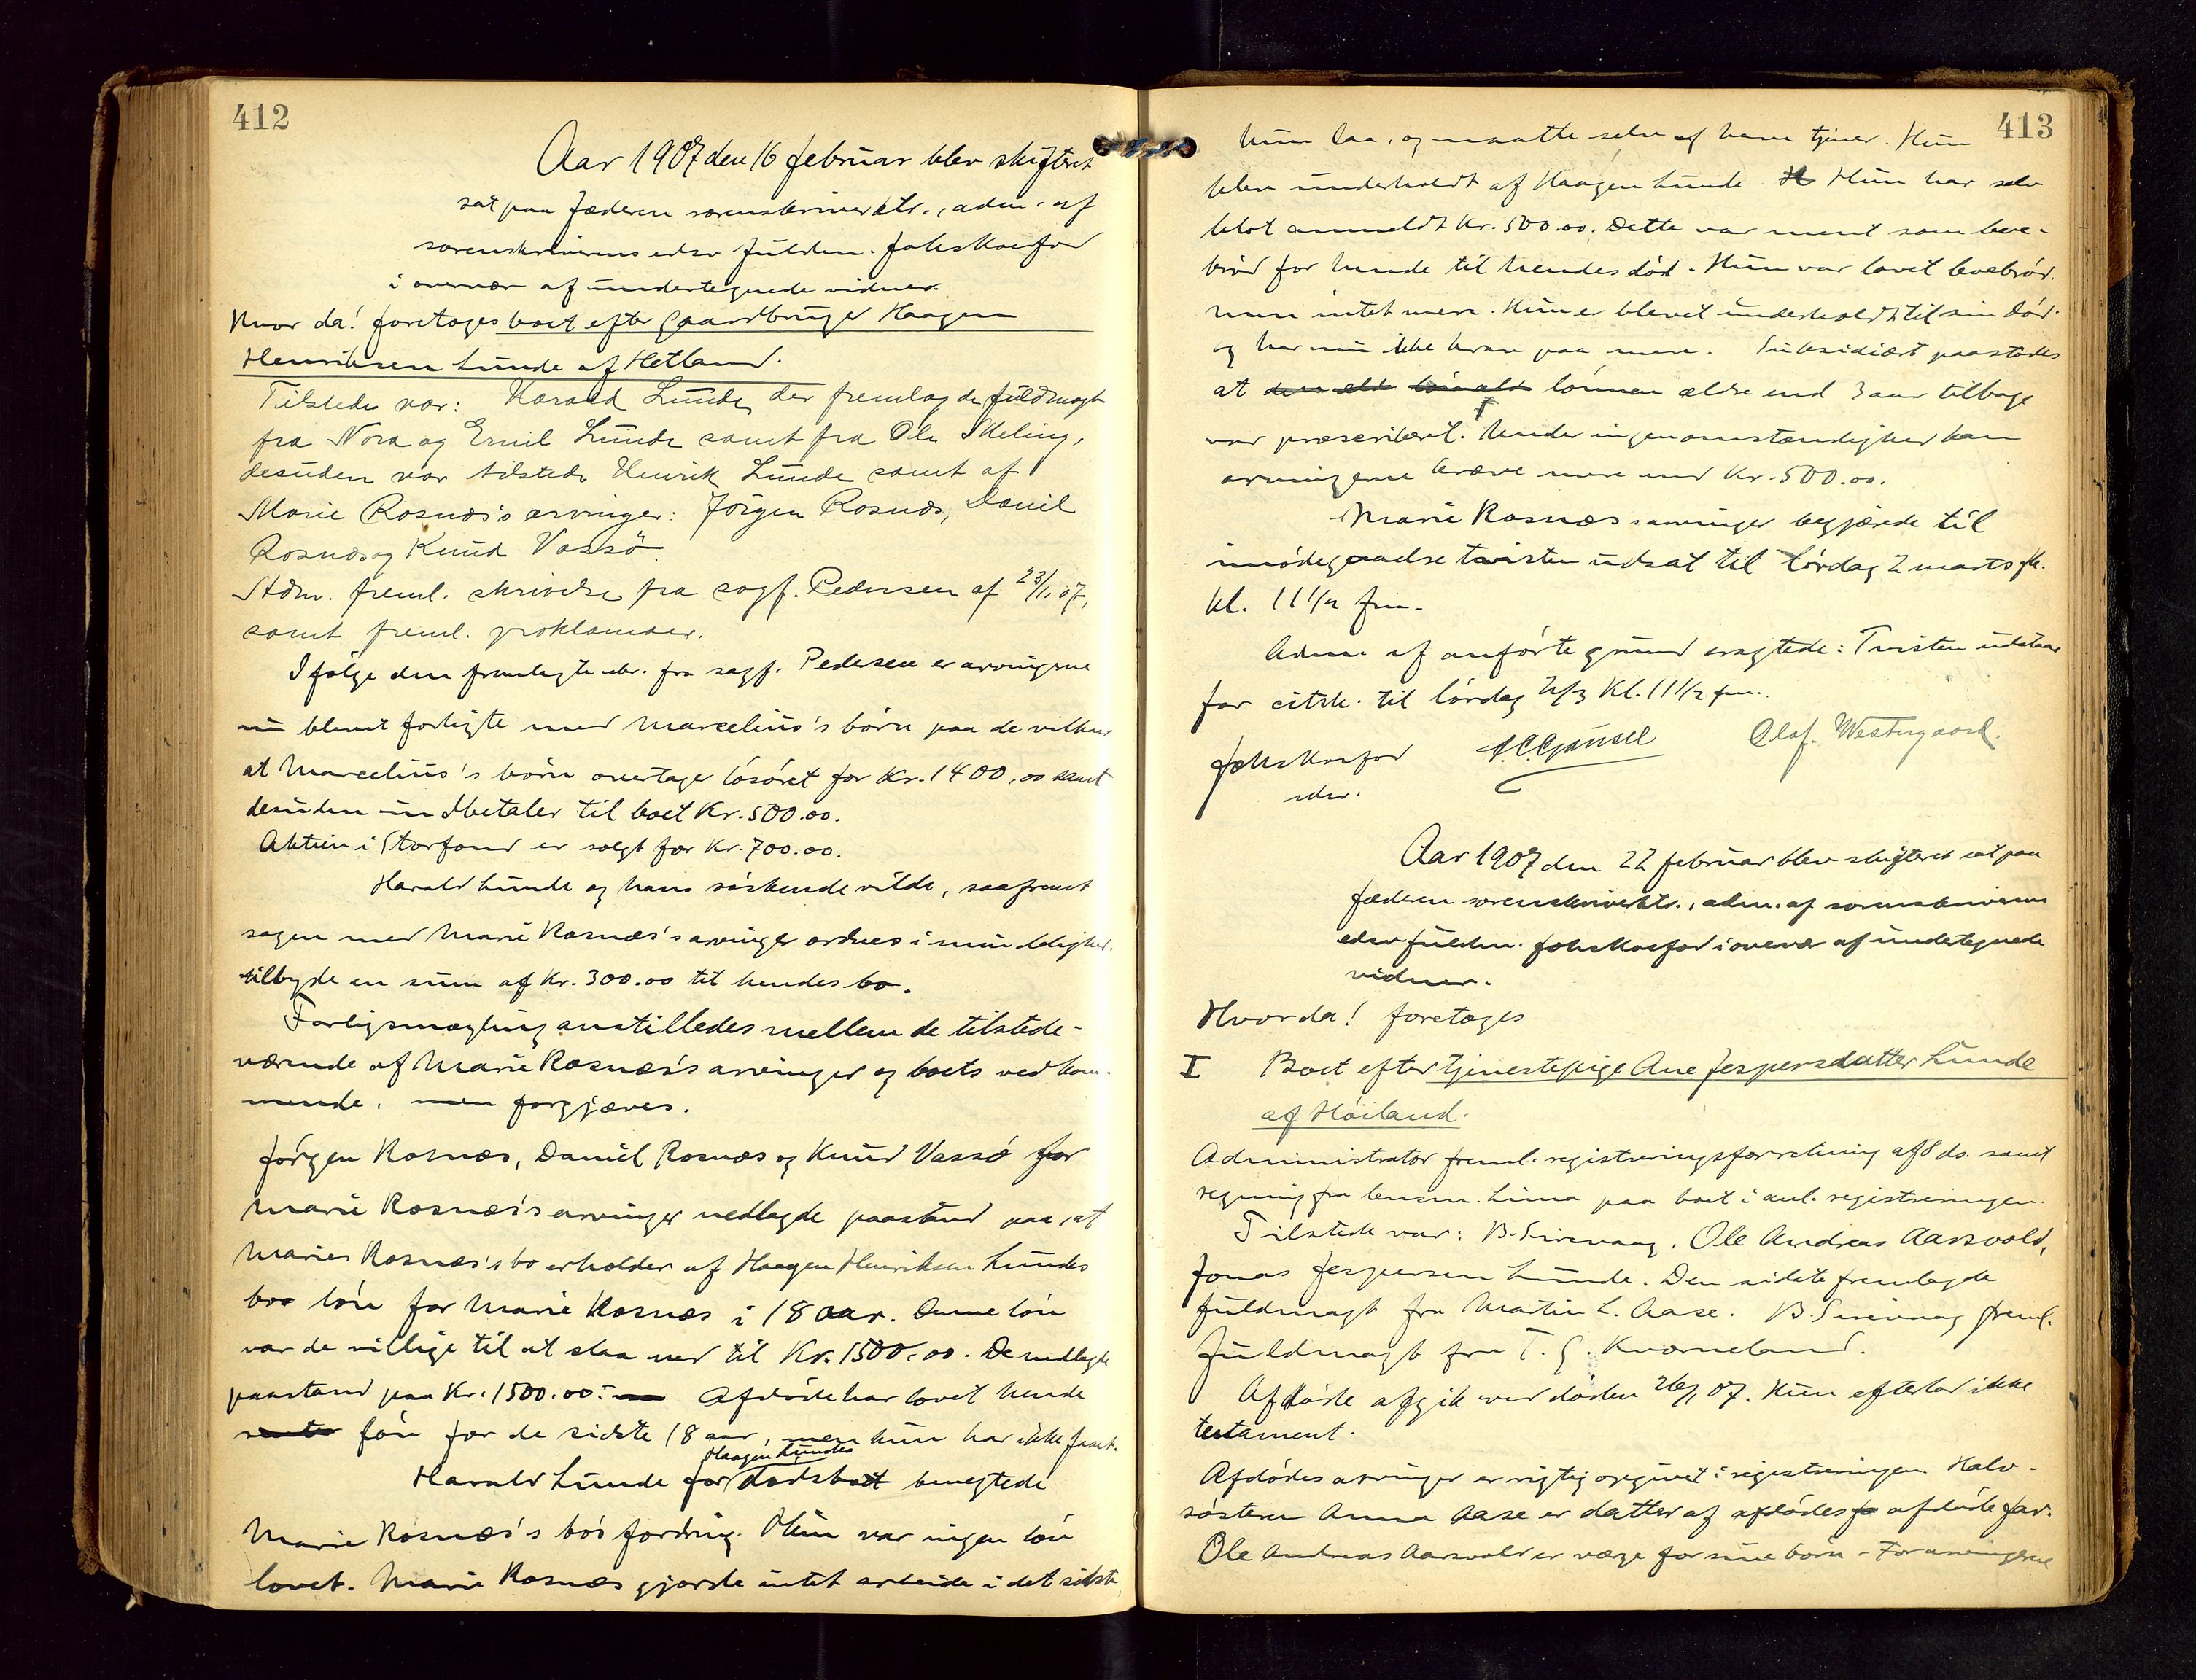 412
Aar 1907 den 16 februar blev skifteret
sat paa Jæderen sorenskriverktr., adm. af
sorenskriverens edsv. fuldm. Johs Korsfor
i overvær af undertegnede vidner.
Hvor da! foretoges boet efter gaardbruger Haagen
Henriksen Lunde af Hetland.
Tilstede var: Harald Lunde, der fremlagde fuldmagt
fra Nora og Emil Lunde samt fra Ole Skeling,
desuden var tilstede Henrik Lunde samt af
Marie Rosnæs's arvinger: Jörgen Rosnæs, Daniel
Rosnæs og Knud Vassö
Adm. freml. skrivelse fra sagf. Pedersen af 23/1 07,
samt freml. proklamaer.
Ifølge den fremlagte skr. fra sagf. Pedersen er arvingerne
nu blevet forligte med Marcelius's børn paa de vilkaar
at Marcelius's børn overtager løsøret for Kr. 1400,00 samt
desuden indbetaler til boet Kr. 500.00.
Aktien i Storfond er solgt for Kr. 700.00.
Harald Lunde og hans søskende vilde, saafremt
sagen med Marie Rosnæs's arvinger ordnes i mindelighed,
tilbyde en sum af Kr. 300.00 til hendes bo.
Forligsmægling anstilledes mellem de tilstede-
værende af Marie Rosnæs's arvinger og boets vedkom-
mende, men forgjæves.
Jørgen Rosnæs, Daniel Rosnæs og Knud Vassø for
Marie Rosnæs's arvinger nedlagde paastand paa, at
Maries Rosnæs's bo erholder af Haagen Henriksen Lundes
bo løn for Marie Rosnæs i 18 aar. Denne løn
var de villige til at slaa ned til Kr. 1500,00. De nedlagde
paastand paa Kr. 1500.00. Afdøde har lovet hende
løn for de sidste 18 aar, men hun har ikke faaet.
Haagen Lundes
Harald Lunde for dødsboet benegtede
Marie Rosnæs's bos fordring. Hun var ingen løn
lovet. Marie Rosnæs gjorde intet arbeide i det sidste,
413
hun laa, og maatte selv af have tjener. Hun
blev underholdt af Haagen Lunde. H Hun har selv
blot anmeldt Kr. 500.00. Dette var ment som leve-
brød for hende til hendes død. Hun var lovet levebrød.
men intet mere. Hun er blevet underholdt til sin død.
og har nu ikke krav paa mere. Subsidiært paastodes
at lønnen ældre end 3 aar tilbage
var præscriberet. Under ingen omstændighed kan
arvingerne kræve mere end Kr. 500.00.
Marie Rosnæs's arvinger begjærede til
imødegaaelse tvisten udsat til lørdag 2 marts
kl. 11 1/2 fm.
Adm. af anførte grund eragtede: Tvisten udstaar
for citsk. til lørdag 2/3 Kl. 11 1/2 fm.
Johs Korsfor Olaf. Westergaard.
edsv.
Aar 1907 den 22 februar blev skifteret sat paa
Jæderen sorenskriverktr., adm. af sorenskriverens
edsv fuldm. Johs Korsfor i overvær af undertegnede
vidner.
Hvor da! foretoges
I Boet efter tjenestepige Ane Jespersdatter Lunde
af Höiland.
Administrator freml. registreringsforretning af 8 ds. samt
regning fra lensm. Lima paa boet i anl. registreringen.
Tilstede var: B. Sirevaag, Ole Andreas Aarsvold,
Jonas Jespersen Lunde. Den sidste fremlagde
fuldmagt fra Martin L. Aase. B Sirevaag freml.
fuldmagt fra T. G. Kværneland.
Afdøde afgik ved døden 26/1 07. Hun efterlod ikke
testament.
Afdødes arvinger er rigtig opgivet i registreringen. Halv-
søsteren Anna Aase er datter af afdødes afdøde far.
Ole Andreas Aarsvold er værge for sine børn - For arvingerne